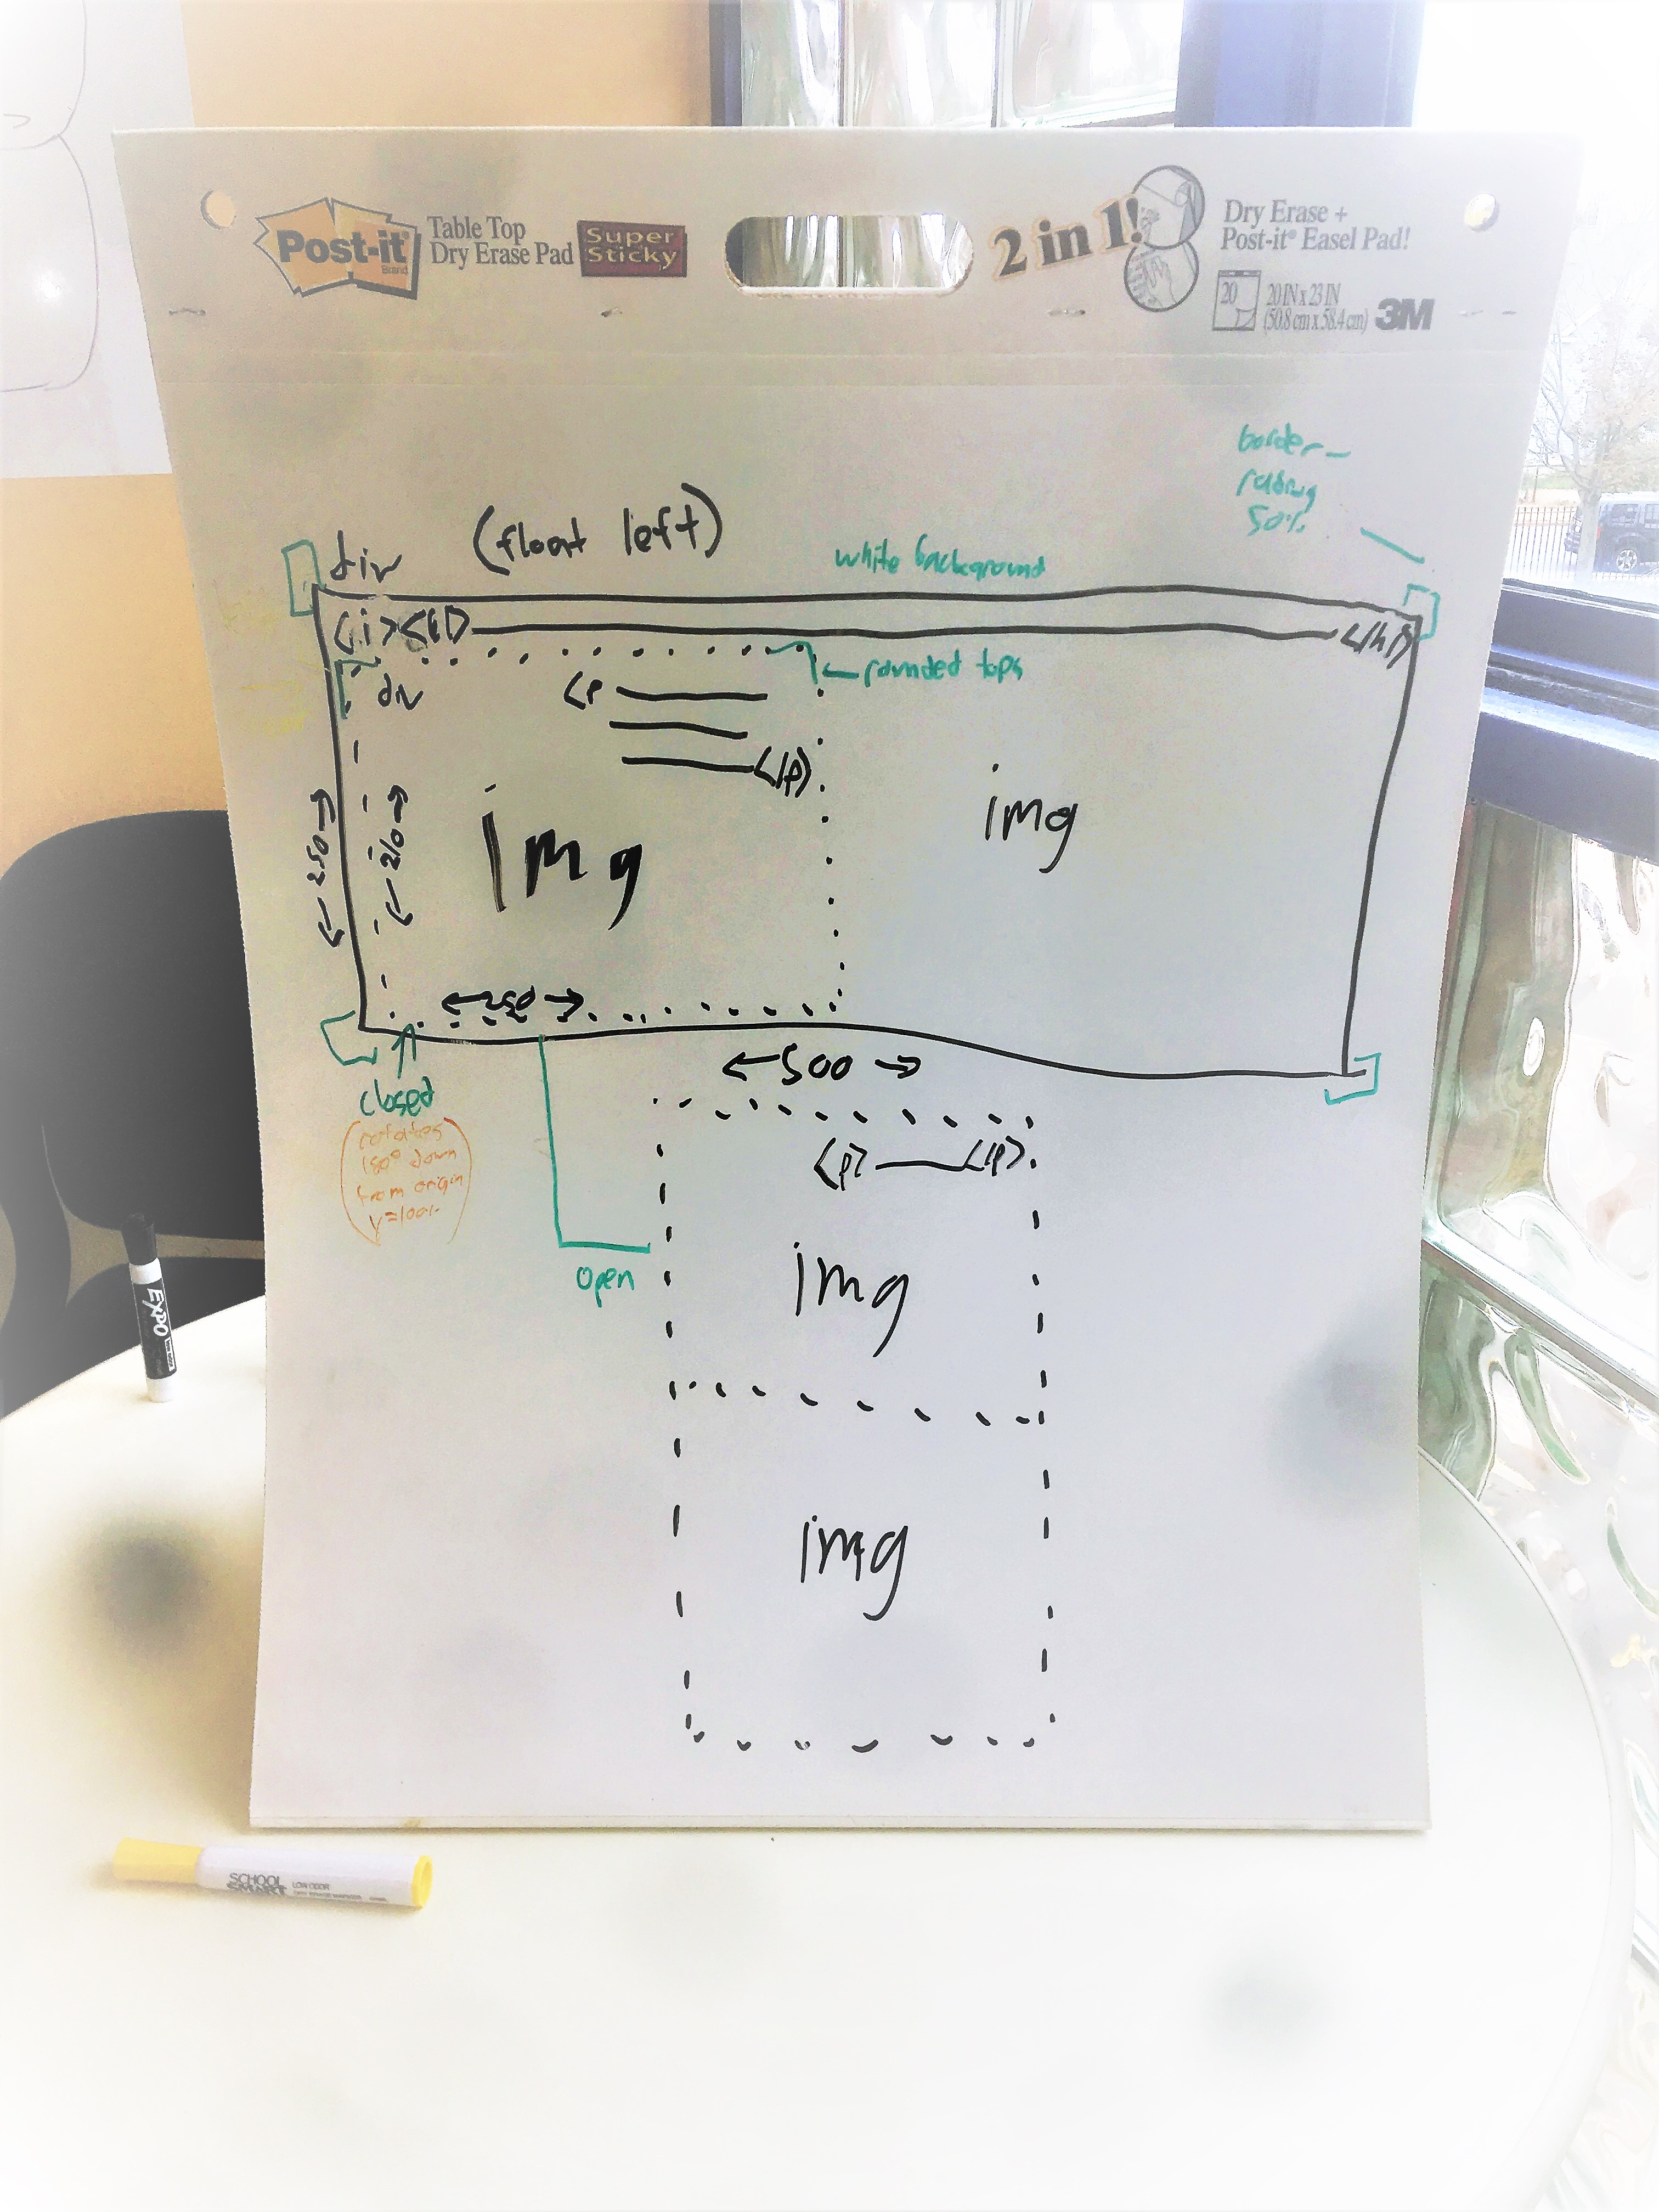 Post-it®
Brand
Table Top
Dry Erase Pad
Super
Sticky
2 in 1!
Dry Erase +
Post-it® Easel Pad!
20
20 IN x 23 IN
(50.8 cm x 58.4 cm)
3M
border-
radius
50%
div
(float left)
white background
<i>
</h1>
rounded tops
div
<p
</p>
img
img
250
210
250
500
closed
(rotates
180° down
from origin
y=100%)
<p> </p>
open
img
img
EXPO
SCHOOL
SMART
LOW ODOR